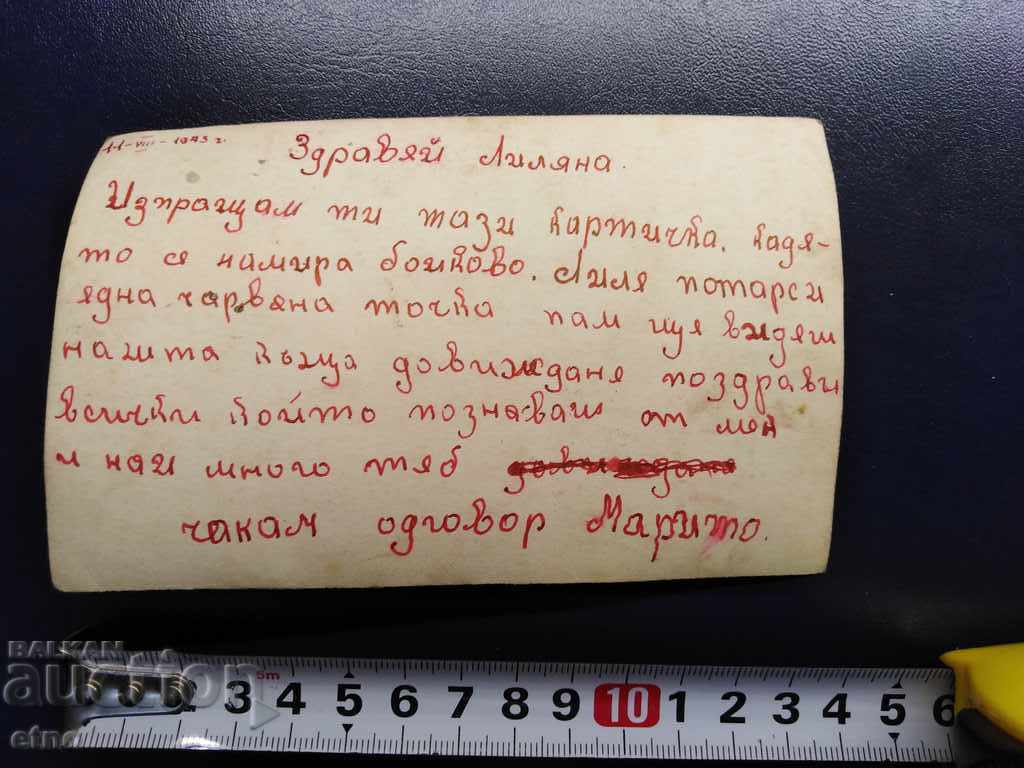 11-VIII-1943 г.
Здравяй Лиляна.
Изпращам ти тази картичка, кадя-
то ся намира бойково. Лиля потарси
една чарвяна точка там ще видяш
нашта къща довиждане поздрави
всички който познаваш от мен
и най много тяб
чакам одговор Марито.
BALKAN
auction
etno
3 5m 4 5 6 7 8 9 10 1 2 3 4 5 6